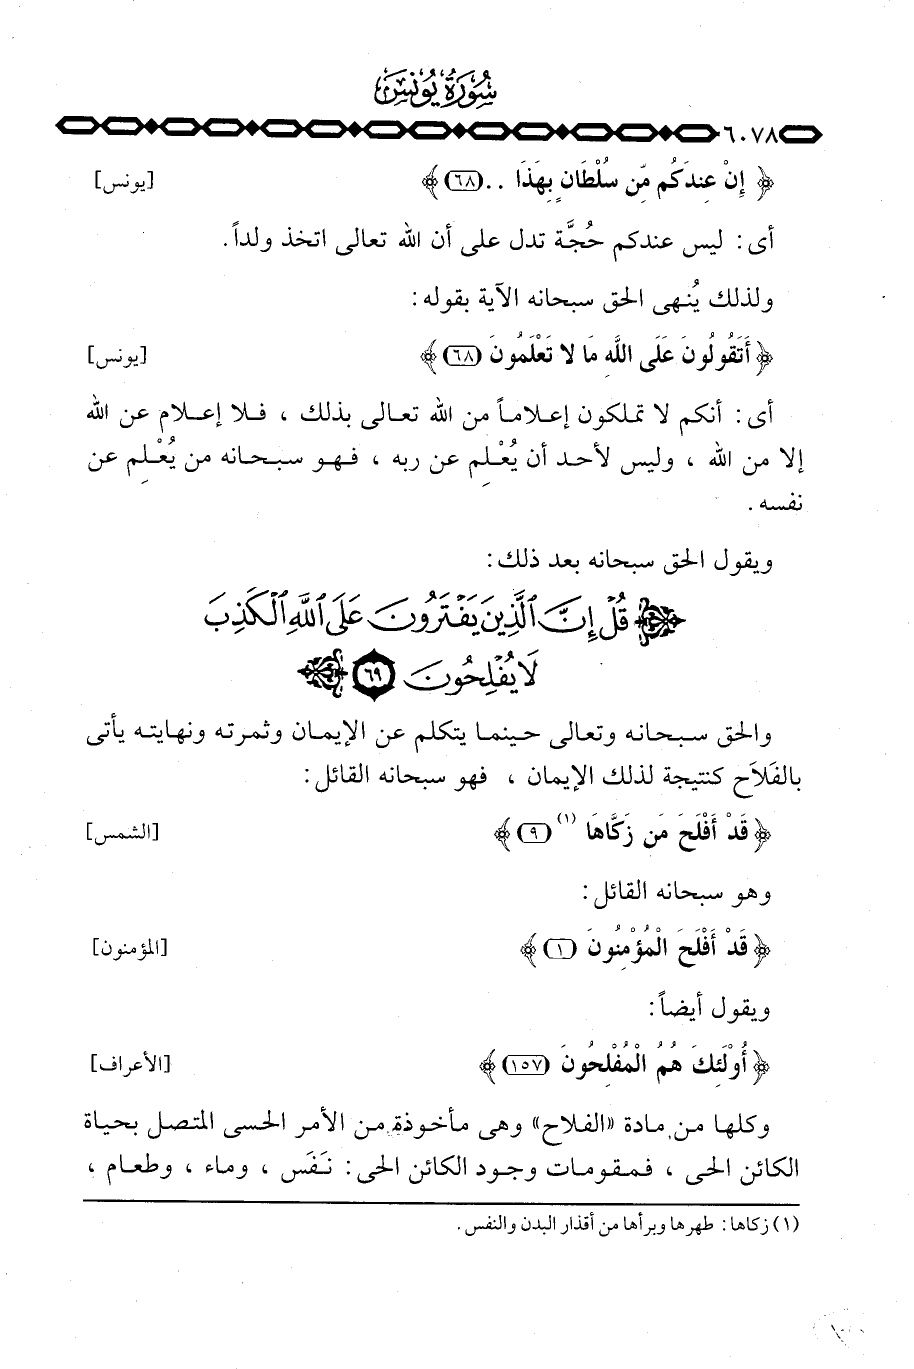 سُورَةُ يُونُسَ
٦٠٧٨
﴿ إِنْ عِندَكُم مِّن سُلْطَانٍ بِهَذَا .. (٦٨) ﴾ [يونس]
أى : ليس عندكم حُجَّة تدل على أن الله تعالى اتخذ ولداً .
ولذلك يُنهى الحق سبحانه الآية بقوله :
﴿ أَتَقُولُونَ عَلَى اللَّهِ مَا لا تَعْلَمُونَ (٦٨) ﴾ [يونس]
أى : أنكم لا تملكون إعلاماً من الله تعالى بذلك ، فلا إعلام عن الله
إلا من الله ، وليس لأحد أن يُعْلِم عن ربه ، فهو سبحانه من يُعْلِم عن
نفسه .
ويقول الحق سبحانه بعد ذلك :
﴿ قُلْ إِنَّ الَّذِينَ يَفْتَرُونَ عَلَى ٱللَّهِ ٱلْكَذِبَ
لَا يُفْلِحُونَ ٦٩ ﴾
والحق سبحانه وتعالى حينما يتكلم عن الإيمان وثمرته ونهايته يأتى
بالفَلَاح كنتيجة لذلك الإيمان ، فهو سبحانه القائل :
﴿ قَدْ أَفْلَحَ مَن زَكَّاهَا (١) (٩) ﴾ [الشمس]
وهو سبحانه القائل :
﴿ قَدْ أَفْلَحَ الْمُؤْمِنُونَ (١) ﴾ [المؤمنون]
ويقول أيضاً :
﴿ أُولَئِكَ هُمُ الْمُفْلِحُونَ (١٥٧) ﴾ [الأعراف]
وكلها من مادة «الفلاح» وهى مأخوذة من الأمر الحسى المتصل بحياة
الكائن الحى ، فمقومات وجود الكائن الحى : نَفَس ، وماء ، وطعام ،
(١) زكاها : طهرها وبرأها من أقذار البدن والنفس .